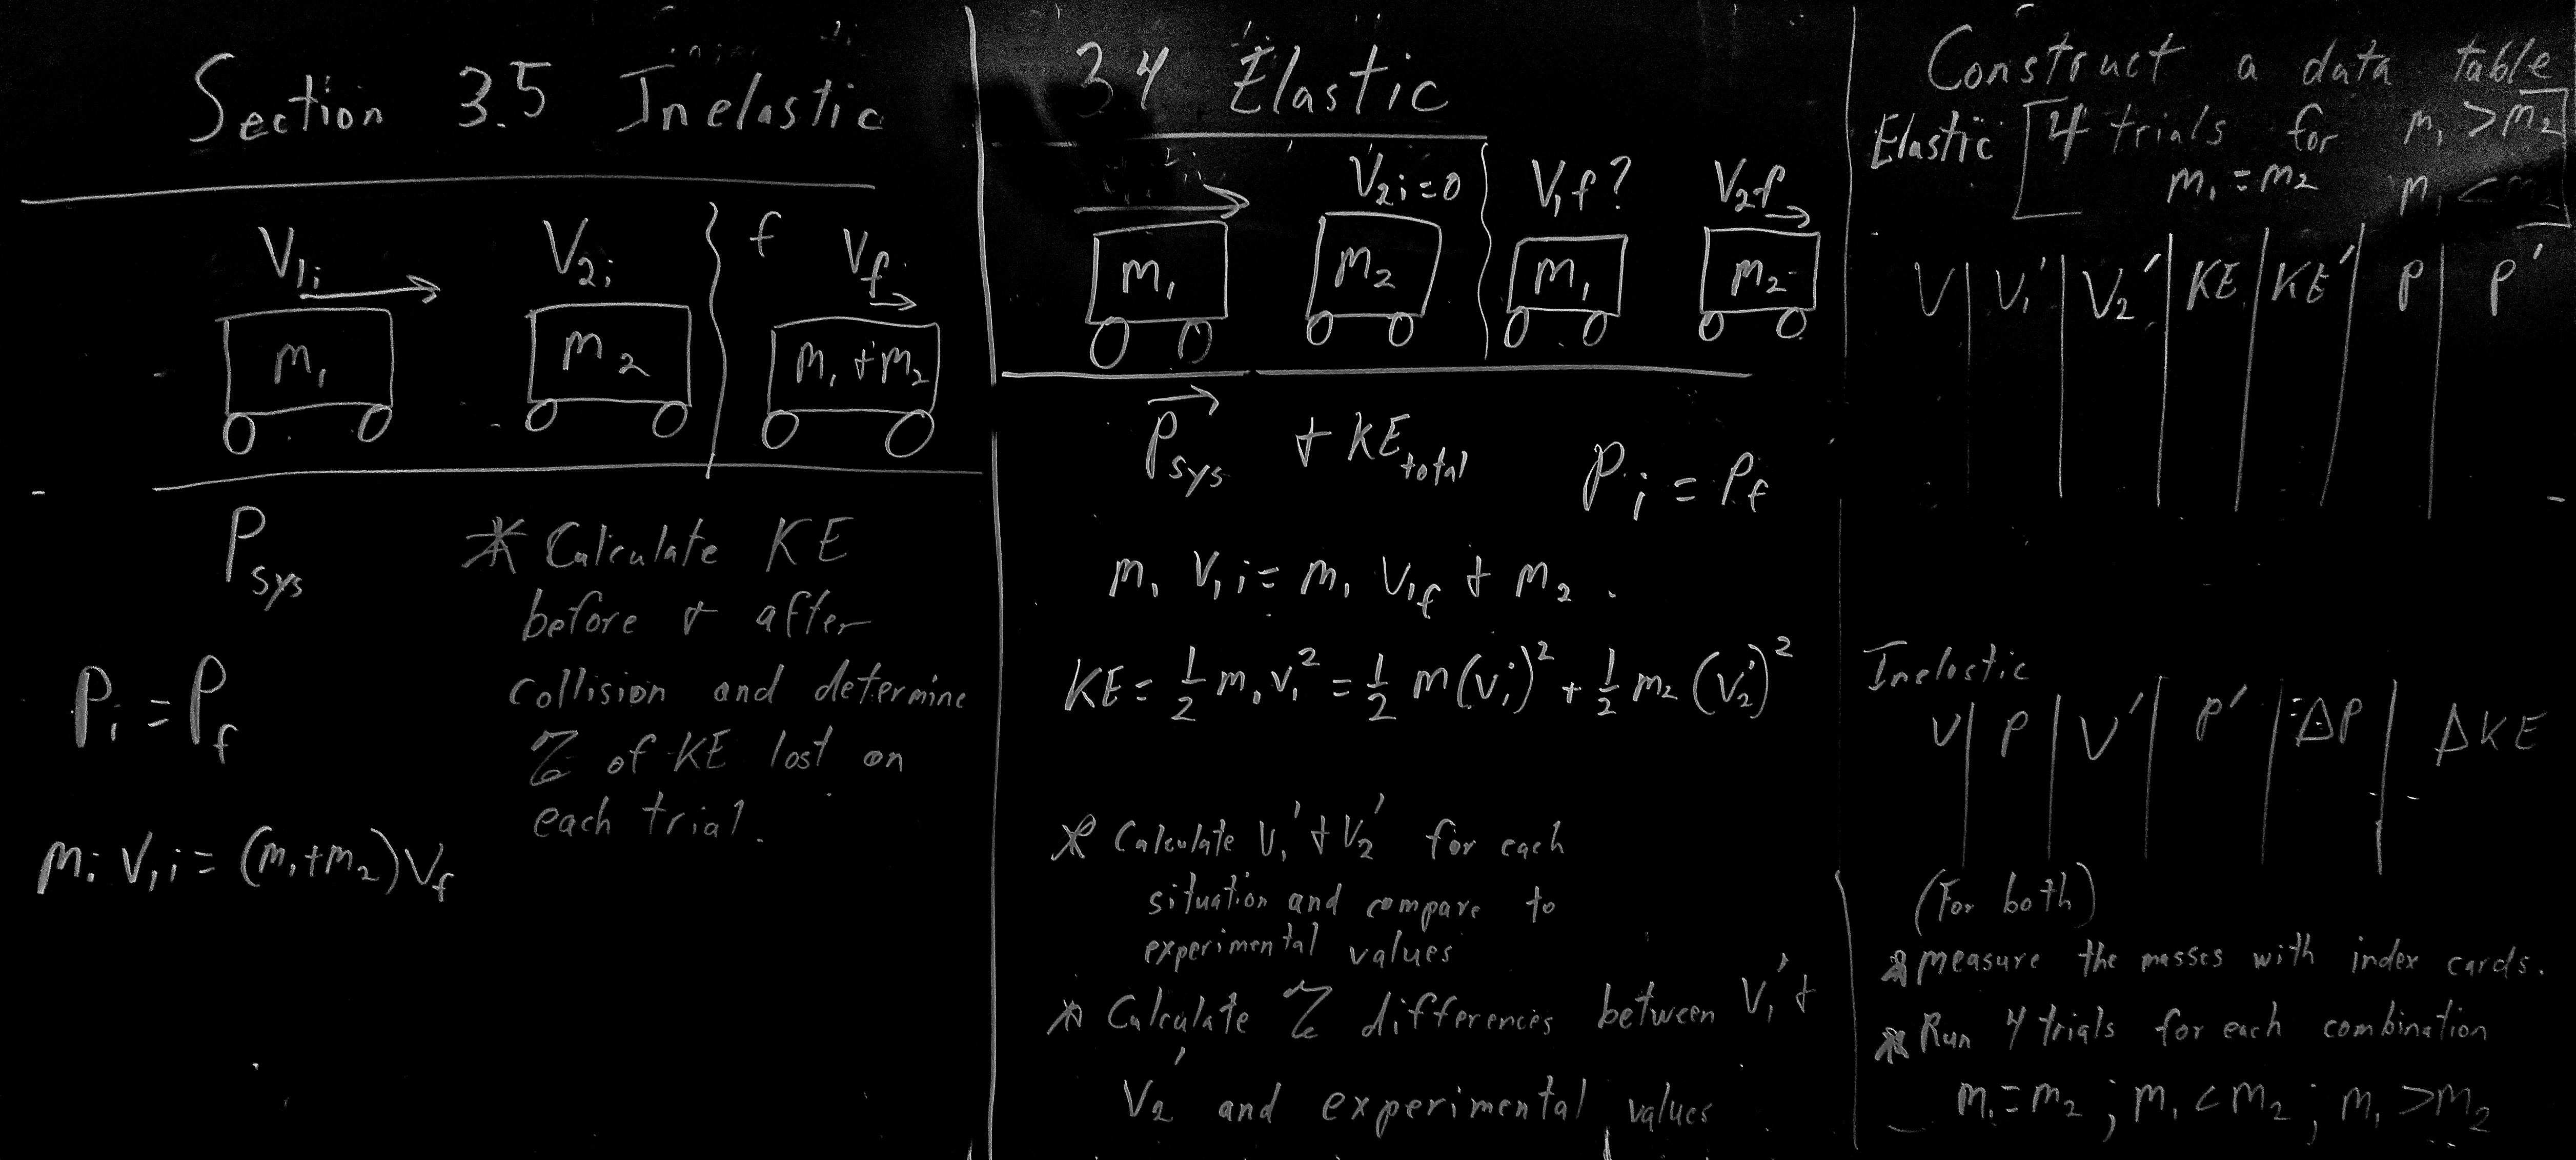 Section 3.5 Inelastic
V₁ᵢ V₂ᵢ f V_f
m₁ m₂ m₁ + m₂
P_sys
* Calculate KE
before + after
collision and determine
% of KE lost on
each trial.
Pᵢ = P_f
m₁ V₁ᵢ = (m₁+m₂)V_f
3.4 Elastic
V₂ᵢ=0 V₁f? V₂f
m₁ m₂ m₁ m₂
P_sys + KE_total Pᵢ = P_f
m₁ V₁ᵢ = m₁ V₁f + m₂
KE = ½ m₁ v₁² = ½ m(v₁')² + ½ m₂ (v₂')²
* Calculate V₁' + V₂' for each
situation and compare to
experimental values
* Calculate % differences between V₁' +
V₂' and experimental values
Construct a data table
Elastic [4 trials for m₁ > m₂]
m₁ = m₂ m₁ < m₂
V | V₁' | V₂' | KE | KE' | P | P'
Inelastic
V | P | V' | P' | ΔP | ΔKE
(For both)
* measure the masses with index cards.
* Run 4 trials for each combination
m₁ = m₂ ; m₁ < m₂ ; m₁ > m₂